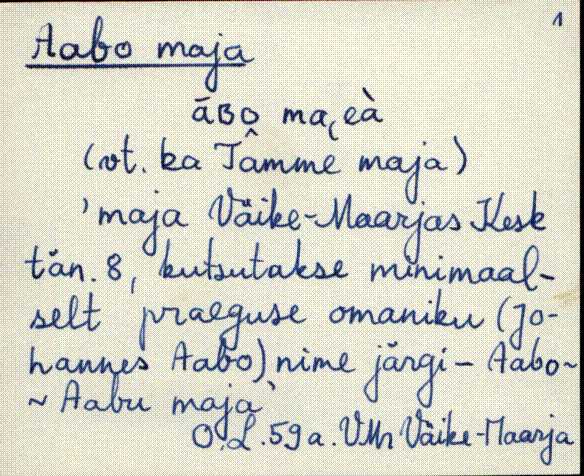 1
Aabo maja
āʙo ma₍eà
(vt. ka Tamme maja)
'maja Väike-Maarjas Kesk
tän. 8, kutsutakse minimaal-
selt praeguse omaniku (Jo-
hannes Aabo) nime järgi - Aabo ~
~ Aabu maja'
O.L. 59 a. VMr Väike-Maarja